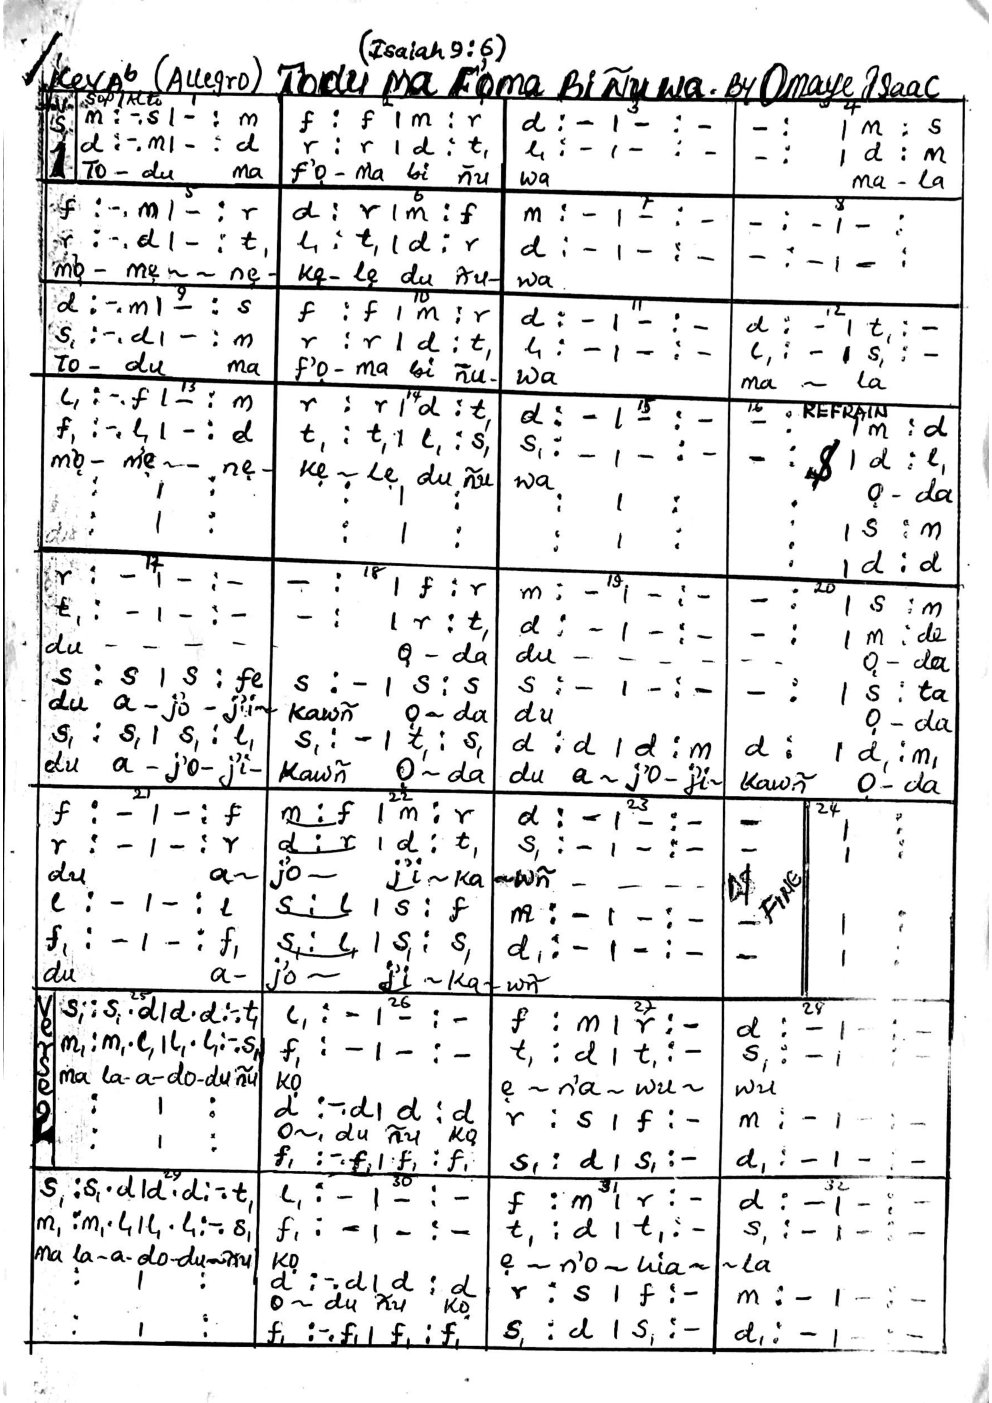 (Isaiah 9:6)
Key Ab (Allegro) Todu ma Foma Bi Ñuwa. By Omaye Isaac
VS 1 Sop/Alto 1 2 3 4
m : -. s | - : m f : f | m : r d : - | - : - - : | m : s
d : -. m | - : d r : r | d : t, l, : - | - : - - : | d : m
To - du ma f'ọ - ma bi ñu wa ma - la
5 6 7 8
f : -. m | - : r d : r | m : f m : - | - : - - : - | - :
r : -. d | - : t, l, : t, | d : r d : - | - : - - : - | - :
mọ - mẹ ~ ~ nẹ - kẹ - lẹ du ñu - wa
9 10 11 12
d : -. m | - : s f : f | m : r d : - | - : - d : - | t, : -
s, : -. d | - : m r : r | d : t, l, : - | - : - l, : - | s, : -
To - du ma f'ọ - ma bi ñu - wa ma ~ la
13 14 15 16 REFRAIN
l, : -. f | - : m r : r | d : t, d : - | - : - - : | m : d
f, : -. l, | - : d t, : t, | l, : s, s, : - | - : - - : | d : l,
mọ - mẹ - - nẹ - kẹ ~ lẹ du ñu wa Ọ - da
: | : : | : : | : : | s : m
: | : : | : : | : : | d : d
17 18 19 20
r : - | - : - - : | f : r m : - | - : - - : | s : m
t, : - | - : - - : | r : t, d : - | - : - - : | m : de
du - - - - - Ọ - da du - - - - - - Ọ - da
s : s | s : fe s : - | s : s s : - | - : - - : | s : ta
du a - jo - ji ~ kawñ Ọ ~ da du Ọ - da
s, : s, | s, : l, s, : - | t, : s, d : d | d : m d : | d, : m,
du a - j'o - j'i - kawñ Ọ ~ da du a ~ j'o - ji ~ kawñ Ọ - da
21 22 23 24
f : - | - : f m : f | m : r d : - | - : - - | :
r : - | - : r d : r | d : t, s, : - | - : - - |
du a ~ jo ~ ji ~ ka ~ wñ - - - - FINE
l : - | - : l s : l | s : f m : - | - : - - | :
f, : - | - : f, s, : l, | s, : s, d, : - | - : - - | :
du a - j'o ~ ji ~ ka ~ wñ
Verse 2 25 26 27 28
s, : s, . d | d . d : -. t, l, : - | - : - f : m | r : - d : - | - : -
m, : m, . l, | l, . l, : -. s, f, : - | - : - t, : d | t, : - s, : - | - : -
ma la - a - do - du ñu kọ ẹ ~ n'a ~ wu ~ wu
: | : d : -. d | d : d r : s | f : - m : - | - : -
O ~ du ñu kọ
: | : f, : -. f, | f, : f, s, : d | s, : - d, : - | - : -
29 30 31 32
s, : s, . d | d . d : -. t, l, : - | - : - f : m | r : - d : - | - : -
m, : m, . l, | l, . l, : -. s, f, : - | - : - t, : d | t, : - s, : - | - : -
ma la - a - do - du ~ ñu kọ ẹ ~ n'o ~ hia ~ ~ la
: | : d : -. d | d : d r : s | f : - m : - | - : -
O ~ du ñu kọ
: | : f, : -. f, | f, : f, s, : d | s, : - d, : - | - : -